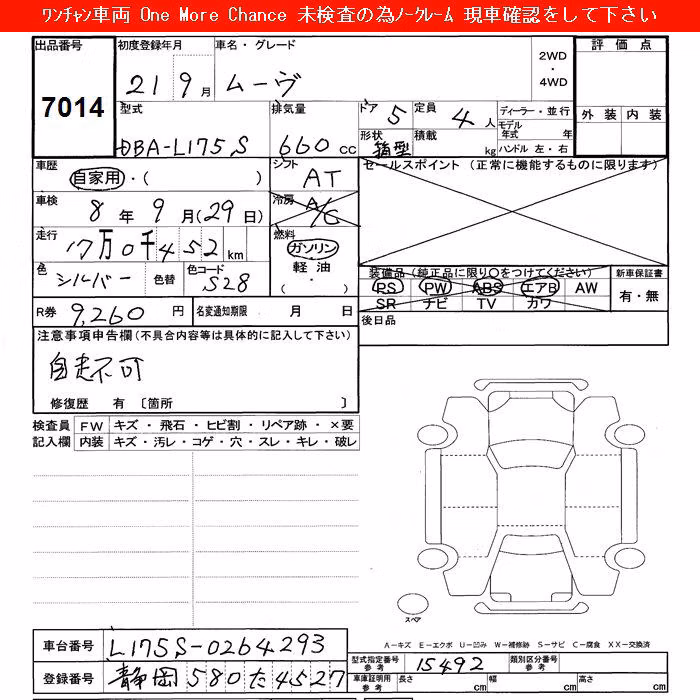 ﾜﾝﾁｬﾝ車両 One More Chance 未検査の為ﾉｰｸﾚｰﾑ 現車確認をして下さい
出品番号 7014
初度登録年月 車名・グレード
21 9月 ムーヴ
2WD ・ 4WD
評価点
外装 内装
型式 排気量 ドア 5 定員 4人 ディーラー・並行
DBA-L175S 660cc
形状 箱型 積載 kg
モデル年式 年
ハンドル 左・右
車歴 自家用・( )
シフト AT
セールスポイント (正常に機能するものに限ります)
車検 8年 9月(29日)
冷房 A/C
走行 17万0千452km
燃料 ガソリン
軽油
・( )
色 シルバー 色替 色コード S28
装備品(純正品に限り〇をつけてください)
PS PW ABS エアB AW
SR ナビ TV カワ
新車保証書
有・無
R券 9,260円 名変通知期限 月 日
後日品
注意事項申告欄(不具合内容等は具体的に記入して下さい)
自走不可
修復歴 有 〔箇所 〕
検査員記入欄
FW キズ・飛石・ヒビ割・リペア跡・×要
内装 キズ・汚レ・コゲ・穴・スレ・キレ・破レ
スペア
A-キズ E-エクボ U-凹み W-補修跡 S-サビ C-腐食 XX-交換済
車台番号 L175S-0264293
登録番号 静岡 580 た 4527
型式指定番号 参考 15492 類別区分番号 参考
車庫証明用 参考 長さ cm 幅 cm 高さ cm